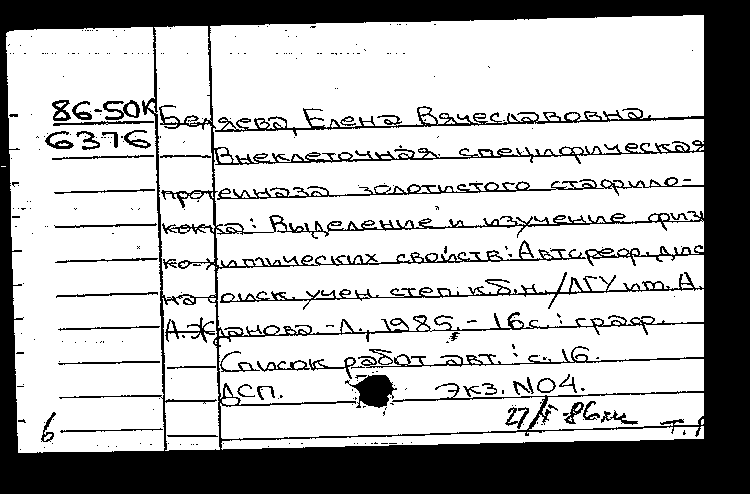 86-50К Беляева, Елена Вячеславовна.
6376
Внеклеточная специфическая
протеиназа золотистого стафило-
кокка: Выделение и изучение физи
ко-химических свойств: Автореф. дис
на соиск. учен. степ. к.б.н. /ЛГУ им. А.
А. Жданова. - Л., 1985. - 16с.: граф.
Список работ авт.: с. 16.
ДСП. Экз. №04.
6